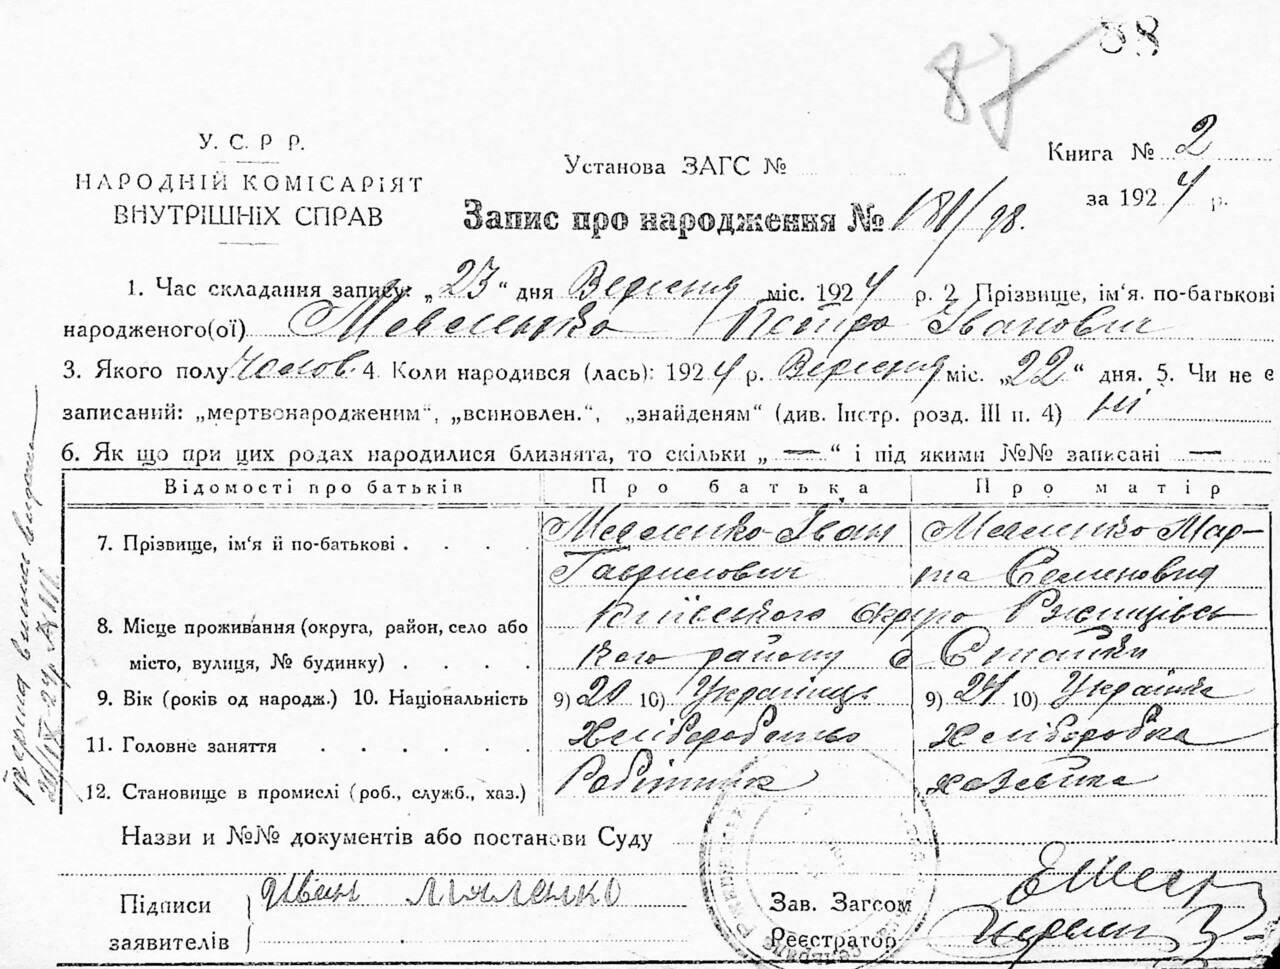 87 88
У. С. Р Р.
НАРОДНІЙ КОМІСАРІЯТ
ВНУТРІШНІХ СПРАВ
Установа ЗАГС №
Книга № 2
за 1924 р.
Запис про народження № 181/98.
1. Час складання запису: „23“ дня Вересня міс. 1924 р. 2 Прізвище, ім‘я. по-батькові
народженого(ої) Мяленко Петро Іванович
3. Якого полу Чолов. 4. Коли народився (лась): 1924 р. Вересня міс. „22“ дня. 5. Чи не є
записаний: „мертвонародженим“, „всиновлен.“, „знайденям“ (див. Інстр. розд. III п. 4) ні
6. Як що при цих родах народилися близнята, то скільки „—“ і під якими №№ записані —
Відомості про батьків Про батька Про матір
7. Прізвище, ім‘я й по-батькові . . . . Мяленко Іван Мяленко Мар-
Гаврилович та Семеновна
8. Місце проживання (округа, район, село або Київського округа Ржищівсь
місто, вулиця, № будинку) . . . . кого району с Стайки
9. Вік (років од народж.) 10. Національність 9) 20 10) Українець 9) 24 10) Українка
11. Головне заняття . . . . . Хліборобство Хліборобка
12. Становище в промислі (роб., служб., хаз.) Робітник хазяйка
Назви и №№ документів або постанови Суду
Підписи Іван Мяленко Зав. Загсом
заявителів Реєстратор